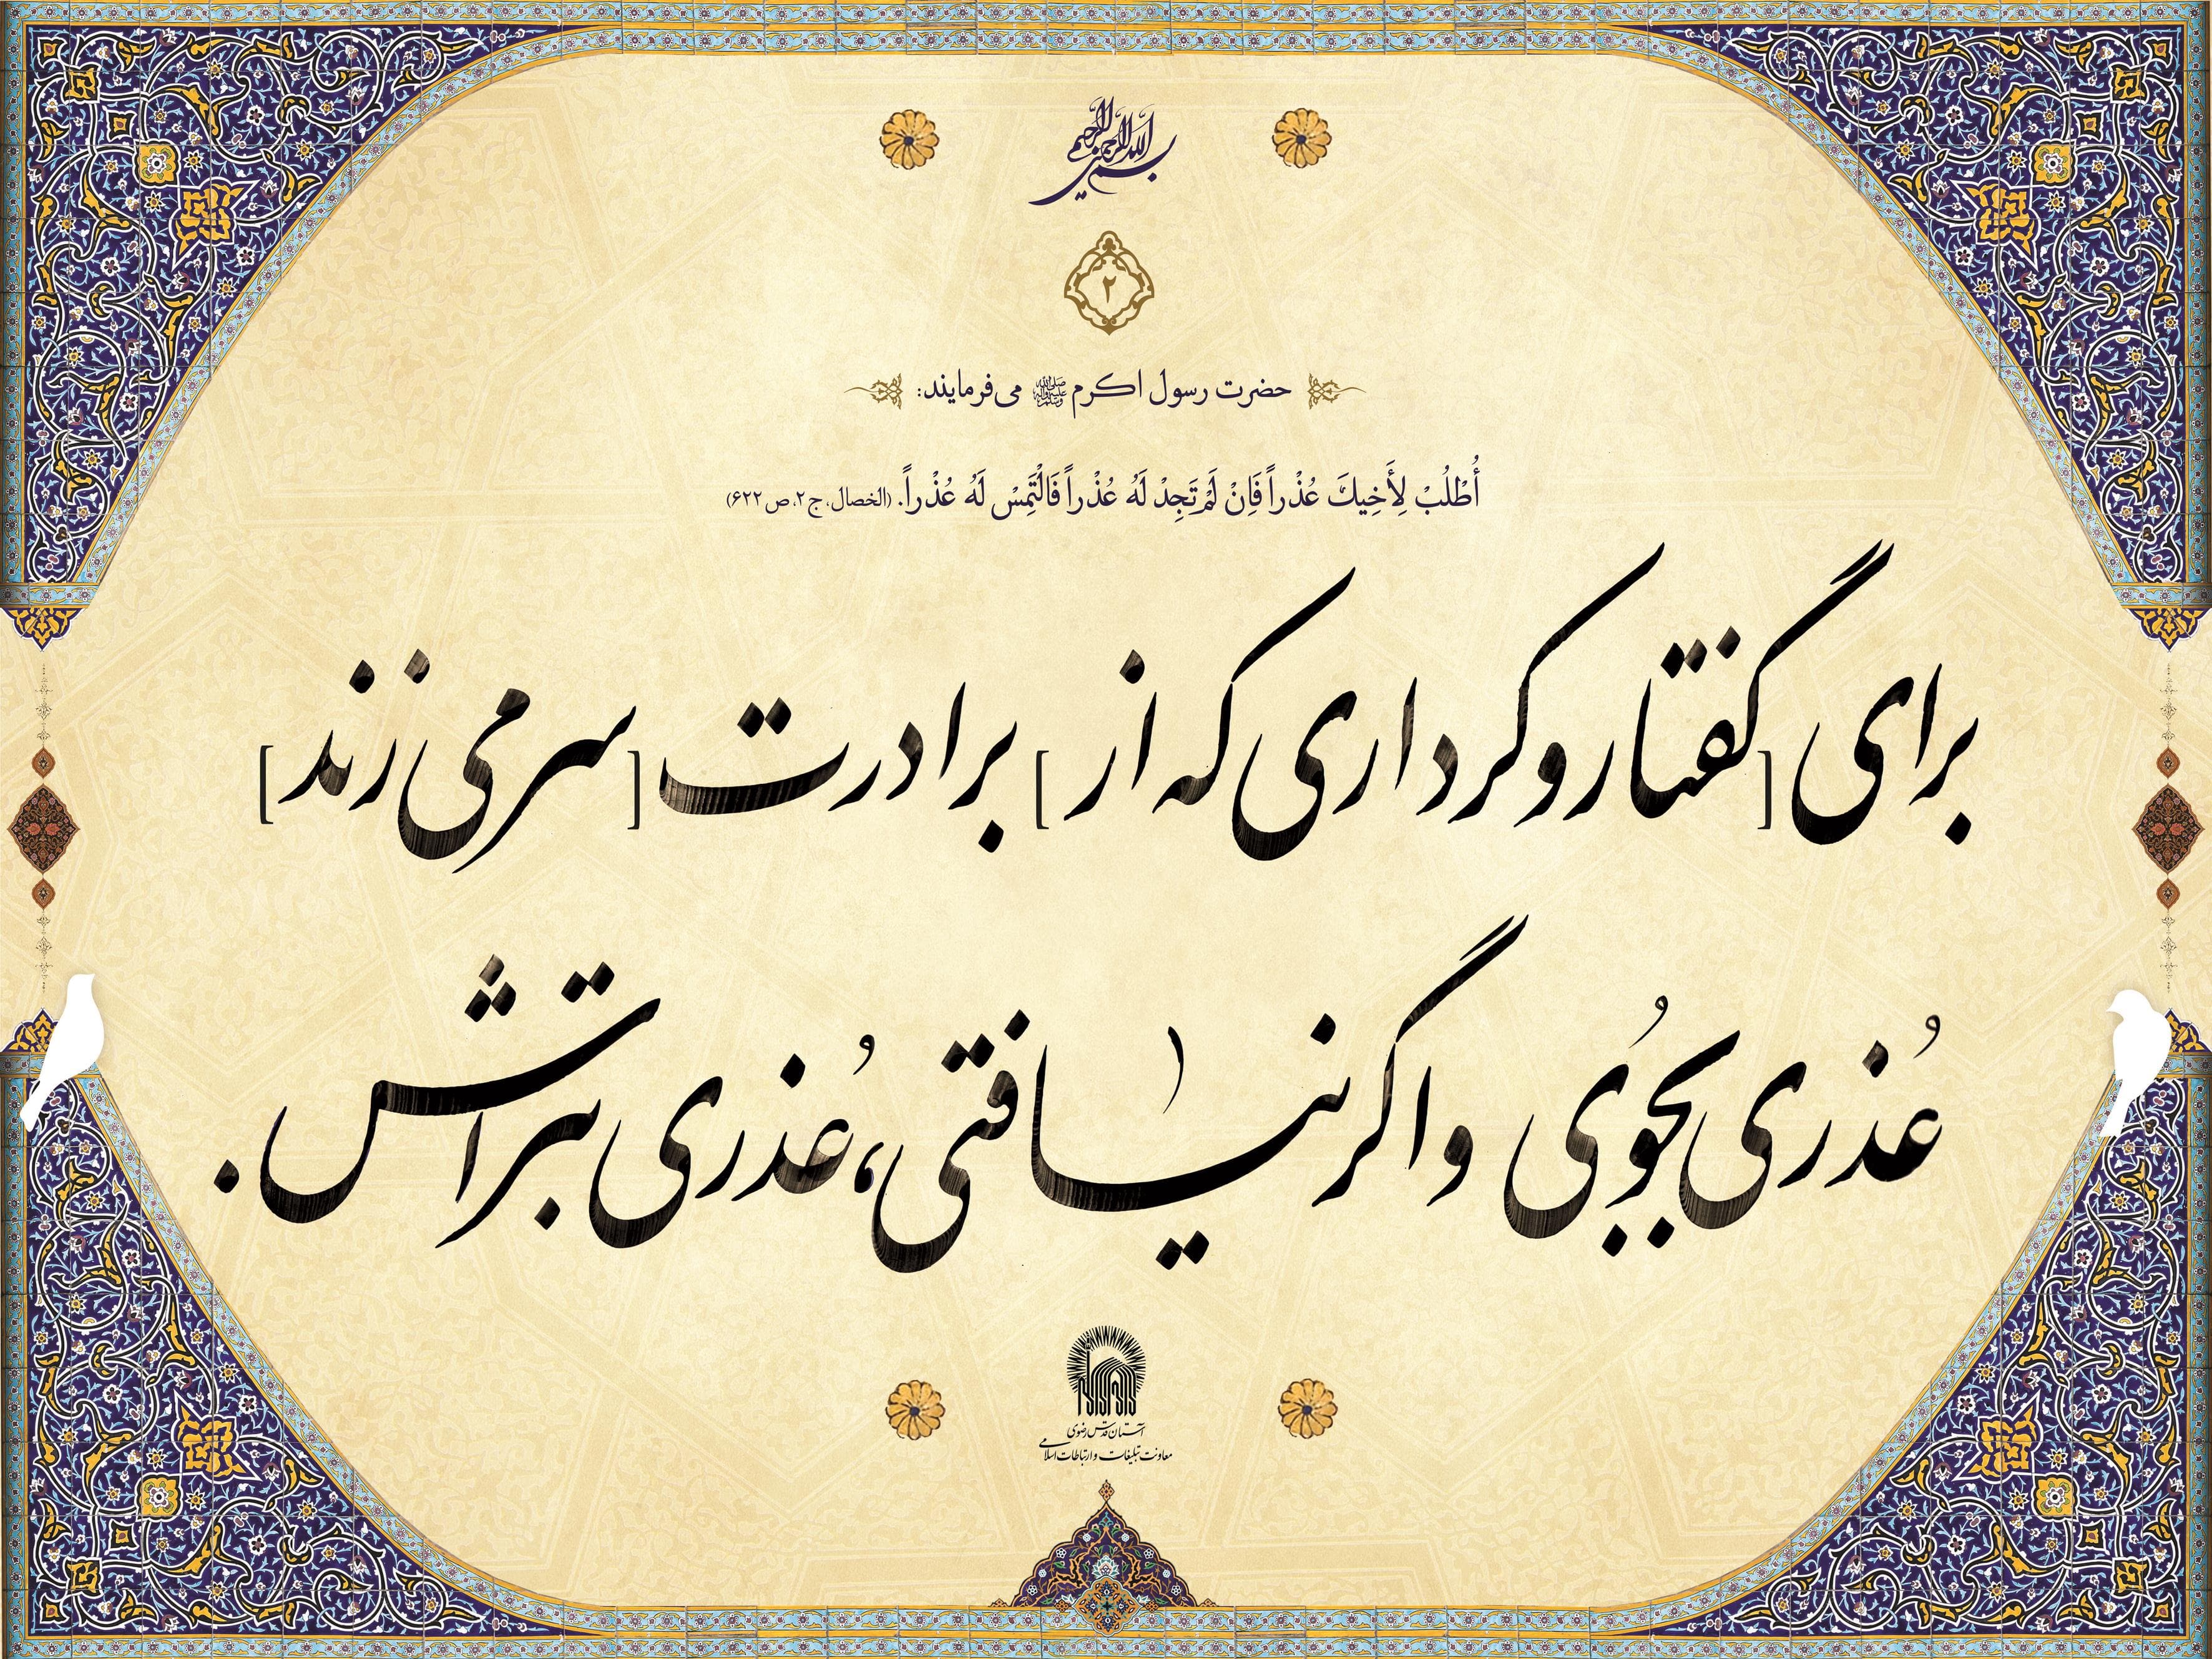 بسم الله الرحمن الرحیم
۲
حضرت رسول اکرم ﷺ می‌فرمایند:
أُطْلُبْ لِأَخِیكَ عُذْراً فَاِنْ لَمْ تَجِدْ لَهُ عُذْراً فَالْتَمِسْ لَهُ عُذْراً. (الخصال، ج ۲، ص ۶۲۲)
برای [گفتار و کرداری که از] برادرت [سر می زند]
عُذری بجُویی و اگر نیافتی، عُذری بتراش.
آستان قدس رضوی
معاونت تبلیغات و ارتباطات اسلامی